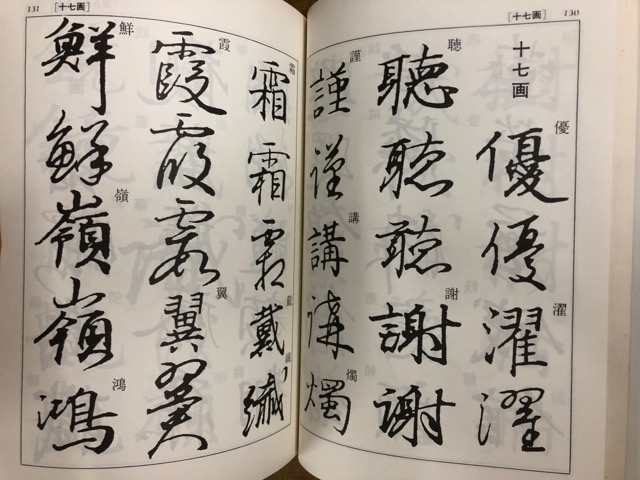 [十七画] 130
十七画
優 濯
優優濯濯
聴 謝
聴聴聴謝謝
謹 講 燭
謹謹講講燭
131 [十七画]
霜 戴 繊
霜霜霜戴繊
霞 翼
霞霞霞翼翼
鮮 嶺 鴻
鮮鮮嶺嶺鴻